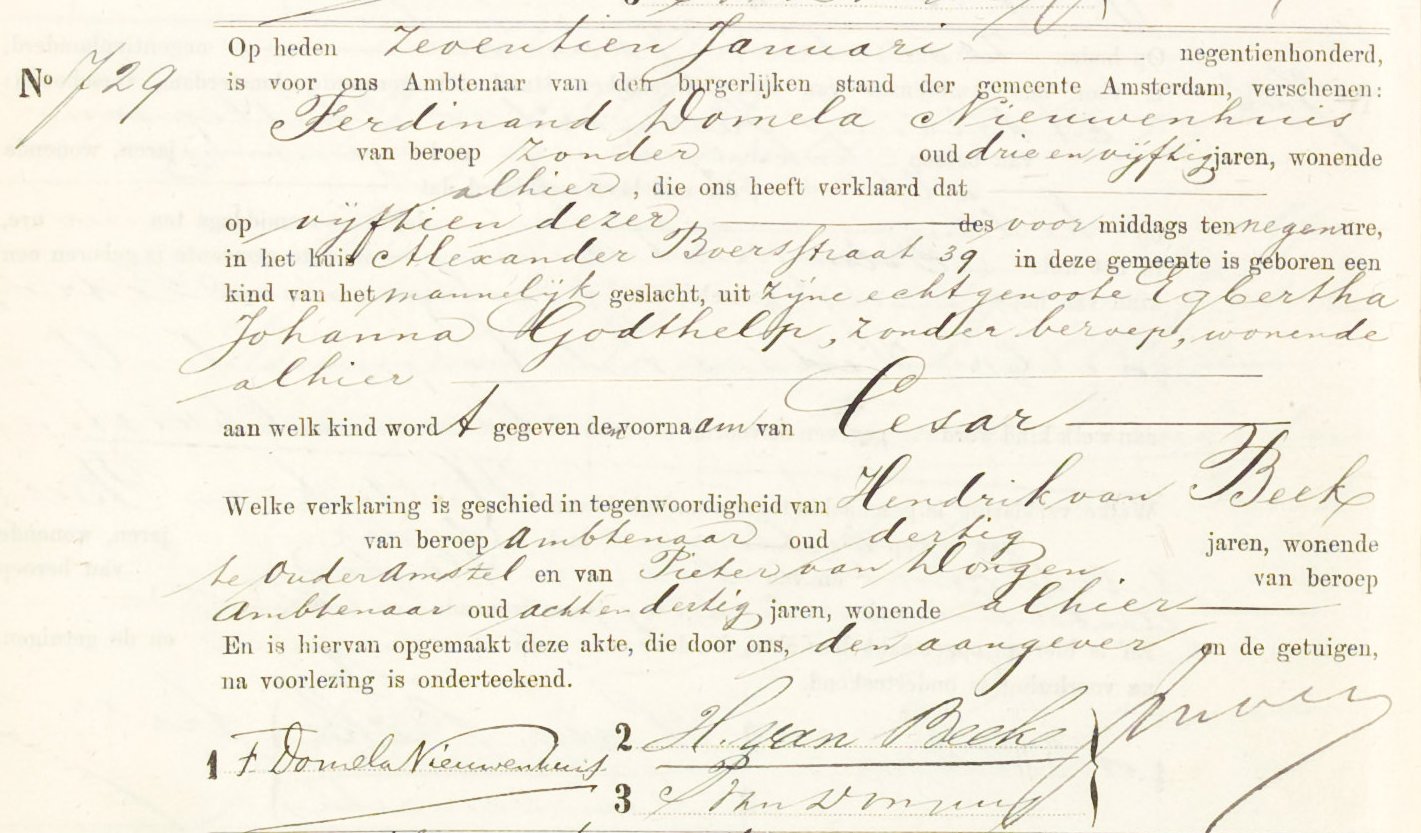 Op heden zeventien Januari negentienhonderd,
No 729 is voor ons Ambtenaar van den burgerlijken stand der gemeente Amsterdam, verschenen:
Ferdinand Domela Nieuwenhuis
van beroep zonder oud drie en vijftig jaren, wonende
alhier, die ons heeft verklaard dat
op vijftien dezer des voor middags ten negen ure,
in het huis Alexander Boersstraat 39 in deze gemeente is geboren een
kind van het mannelijk geslacht, uit zijne echtgenoote Egbertha
Johanna Godthelp, zonder beroep, wonende
alhier
aan welk kind wordt gegeven den voornaam van Cesar
Welke verklaring is geschied in tegenwoordigheid van Hendrik van Beek
van beroep Ambtenaar oud dertig jaren, wonende
te Ouder Amstel en van Pieter van Dongen van beroep
Ambtenaar oud acht en dertig jaren, wonende alhier
En is hiervan opgemaakt deze akte, die door ons, den aangever en de getuigen,
na voorlezing is onderteekend.
1 F Domela Nieuwenhuis 2 H. van Beek
3 P van Dongen